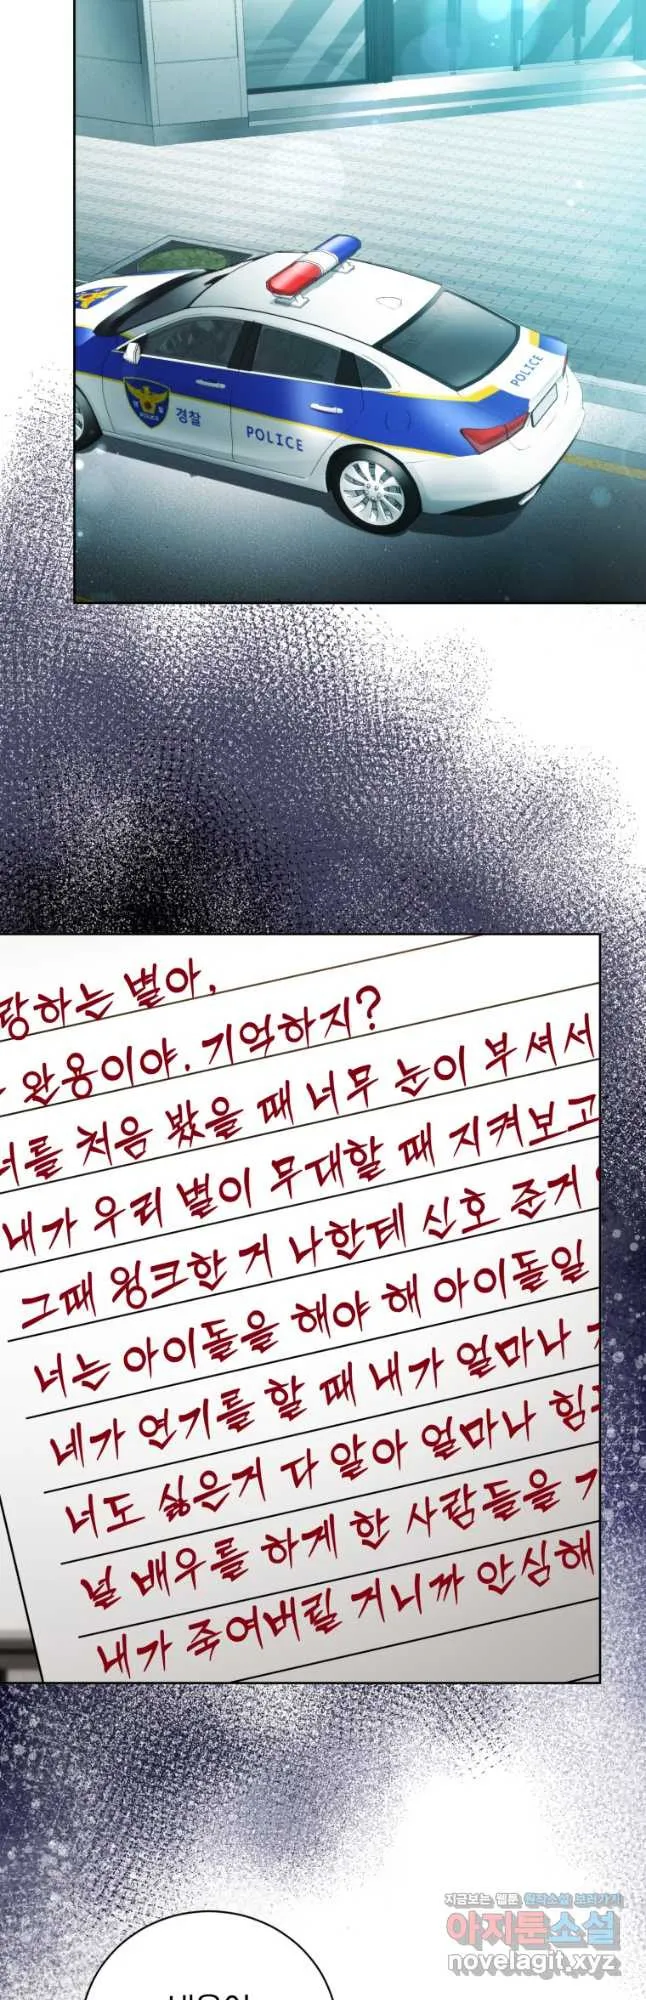 POLICE
경찰
POLICE
랑하는 별아,
찬용이야. 기억하지?
너를 처음 봤을 때 너무 눈이 부셔서
내가 우리 별이 무대할 때 지켜보고
그때 윙크한 거 나한테 신호 준거
너는 아이돌을 해야 해 아이돌일
네가 연기를 할 때 내가 얼마나
너도 싫은거 다 알아 얼마나 힘
널 배우를 하게 한 사람들을
내가 죽여버릴 거니까 안심해
지금보는 웹툰 원작소설 보러가기
아지툰소설
novelagit.xyz
내용이